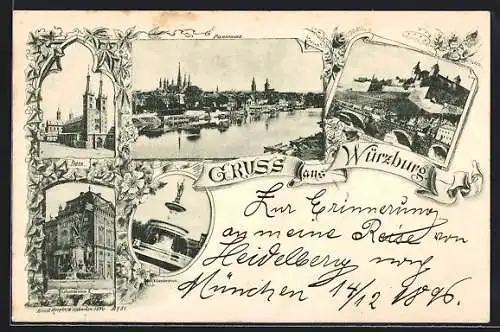 Panorama
Dom.
GRUSS
aus
Würzburg
Zur Erinnerung
an meine Reise von
Heidelberg nach
München 14/12 1896.